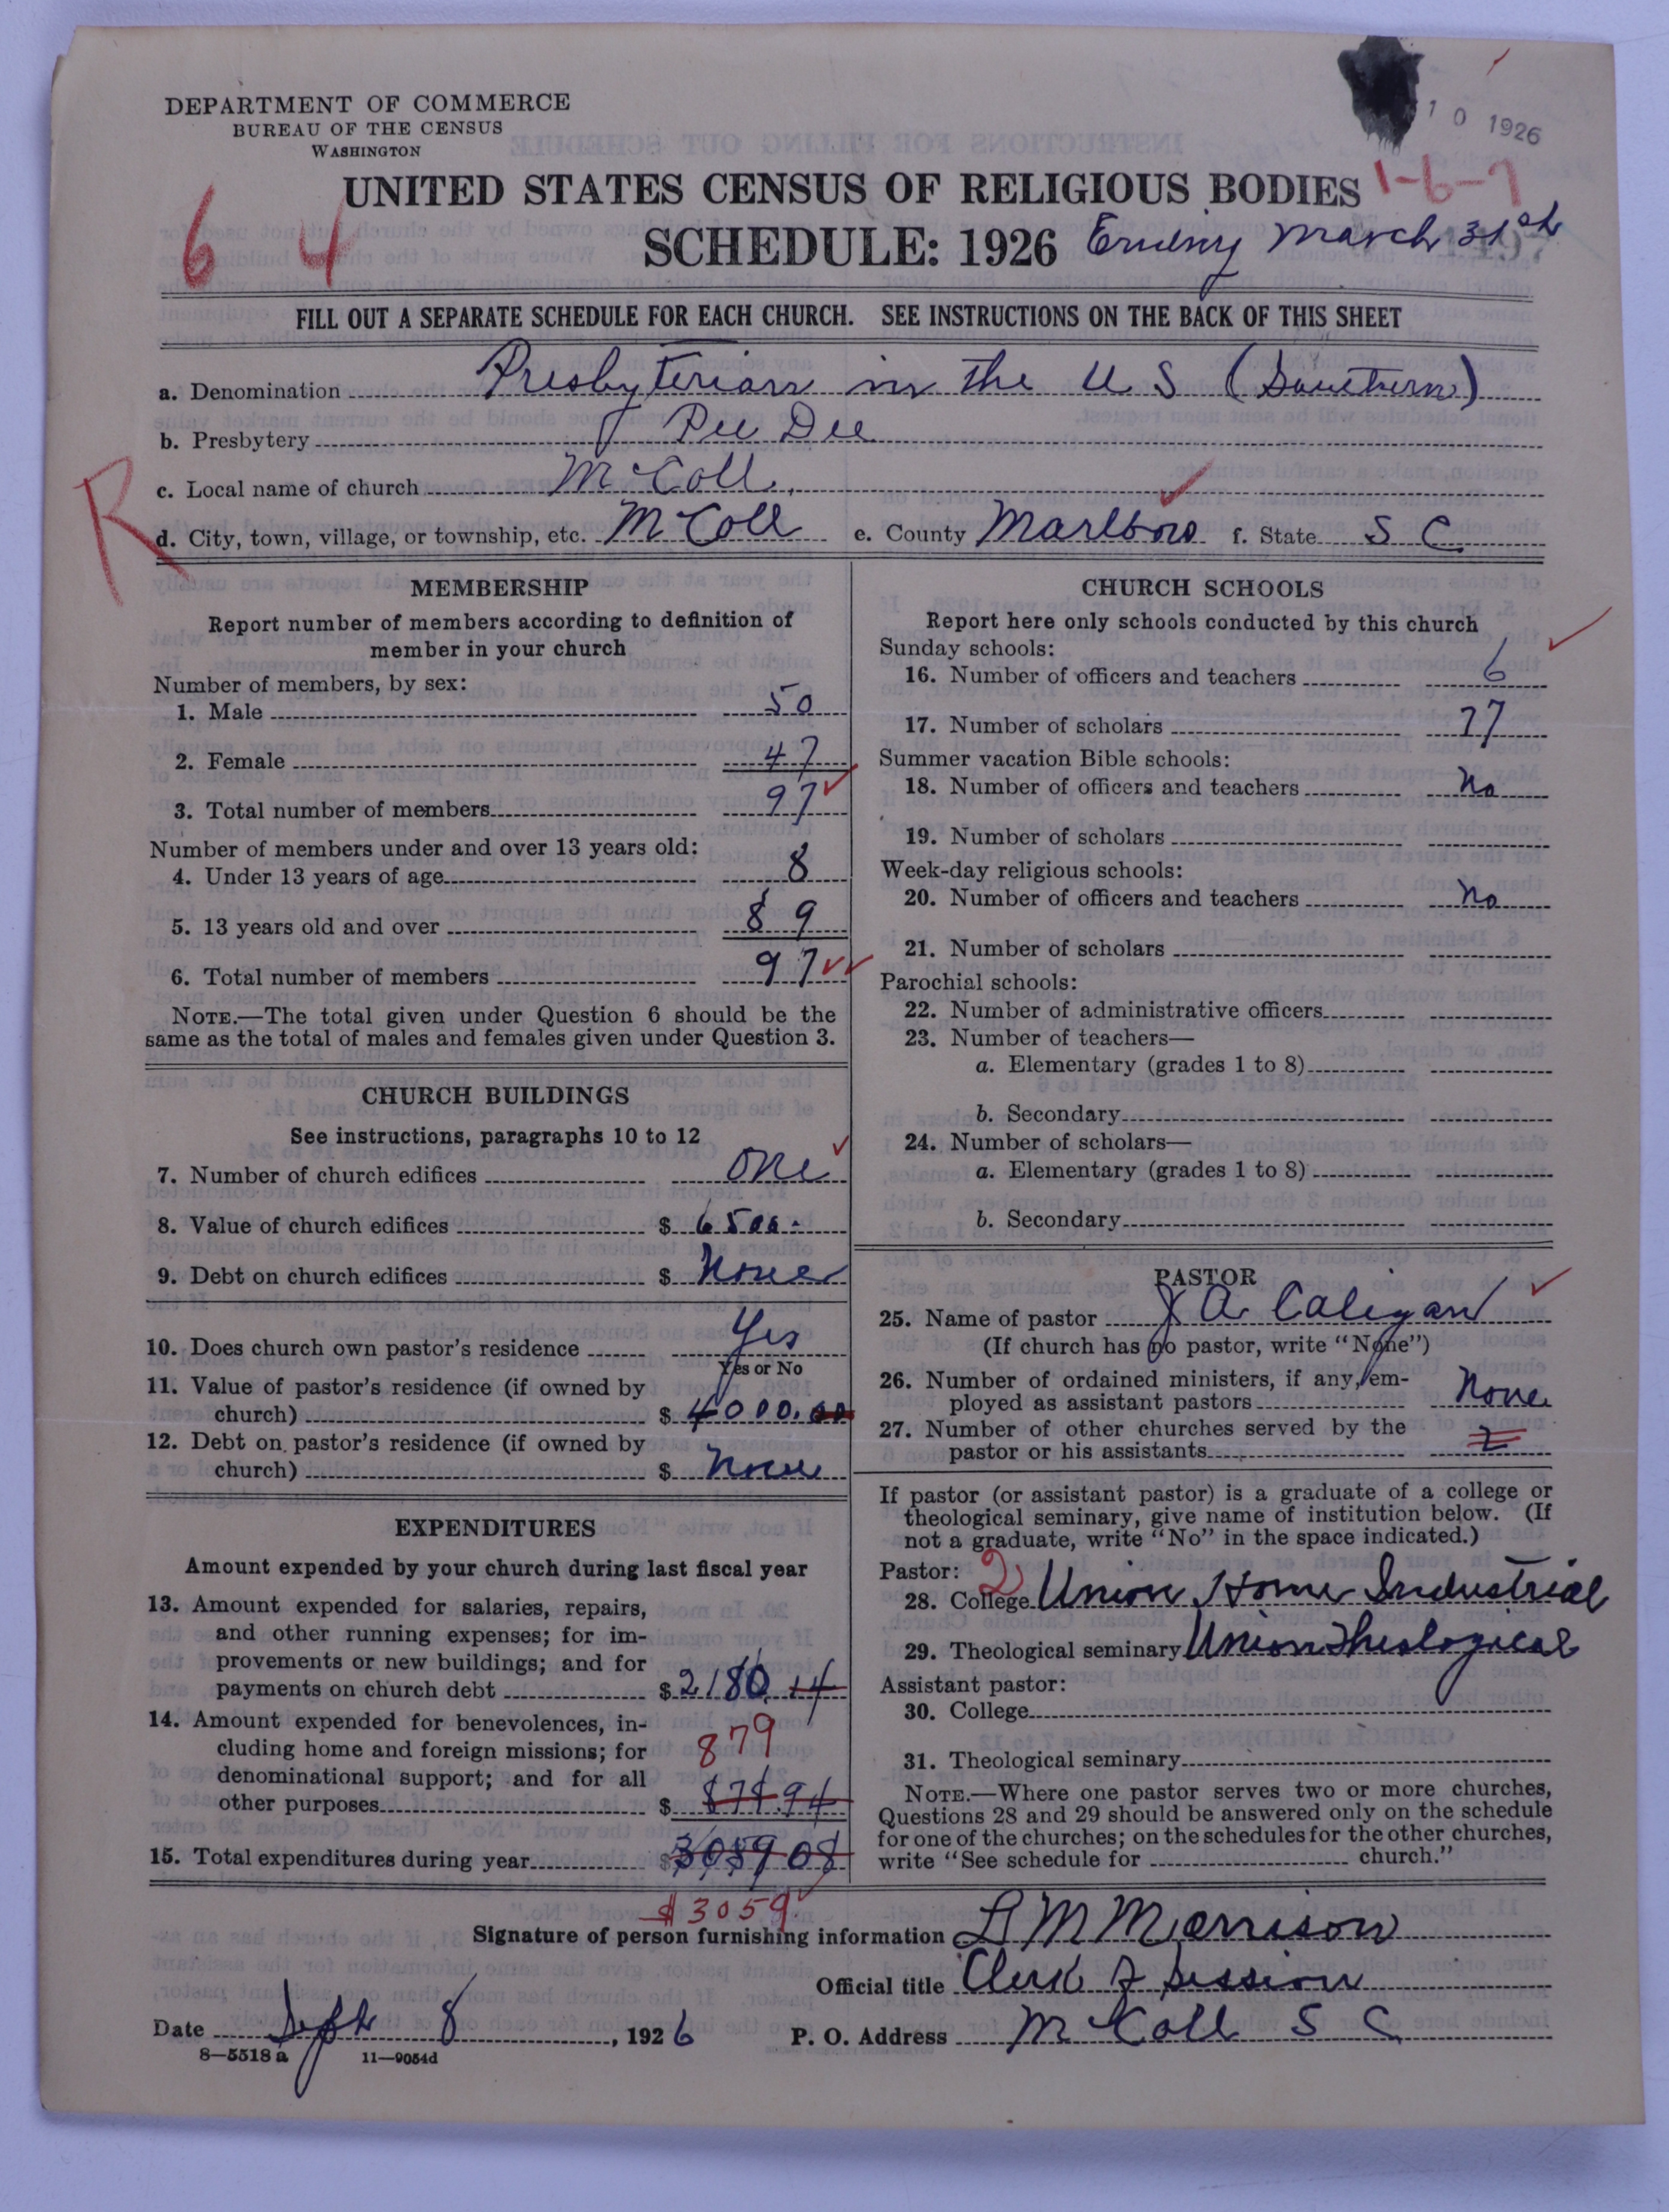 DEPARTMENT OF COMMERCE
BUREAU OF THE CENSUS
WASHINGTON
10 1926
1-6-7
UNITED STATES CENSUS OF RELIGIOUS BODIES
6 4
SCHEDULE: 1926 Ending March 31st
FILL OUT A SEPARATE SCHEDULE FOR EACH CHURCH. SEE INSTRUCTIONS ON THE BACK OF THIS SHEET
a. Denomination Presbyterian in the U S (Southern)
b. Presbytery Pee Dee
c. Local name of church McColl
R
d. City, town, village, or township, etc. McColl e. County Marlboro f. State S C
MEMBERSHIP
Report number of members according to definition of
member in your church
Number of members, by sex:
1. Male 50
2. Female 47
3. Total number of members 97
Number of members under and over 13 years old:
4. Under 13 years of age 8
5. 13 years old and over 89
6. Total number of members 97
NOTE.—The total given under Question 6 should be the
same as the total of males and females given under Question 3.
CHURCH BUILDINGS
See instructions, paragraphs 10 to 12
7. Number of church edifices One
8. Value of church edifices $ 6500-
9. Debt on church edifices $ None
10. Does church own pastor's residence Yes
Yes or No
11. Value of pastor's residence (if owned by
church) $ 4000.00
12. Debt on pastor's residence (if owned by
church) $ None
EXPENDITURES
Amount expended by your church during last fiscal year
13. Amount expended for salaries, repairs,
and other running expenses; for im-
provements or new buildings; and for
payments on church debt $ 2180 14
14. Amount expended for benevolences, in-
cluding home and foreign missions; for 879
denominational support; and for all
other purposes $ 878.94
15. Total expenditures during year $ 3059 08
$3059
CHURCH SCHOOLS
Report here only schools conducted by this church
Sunday schools:
16. Number of officers and teachers 6
17. Number of scholars 77
Summer vacation Bible schools:
18. Number of officers and teachers No
19. Number of scholars
Week-day religious schools:
20. Number of officers and teachers No
21. Number of scholars
Parochial schools:
22. Number of administrative officers
23. Number of teachers—
a. Elementary (grades 1 to 8)
b. Secondary
24. Number of scholars—
a. Elementary (grades 1 to 8)
b. Secondary
PASTOR
25. Name of pastor J A Caligan
(If church has no pastor, write "None")
26. Number of ordained ministers, if any, em-
ployed as assistant pastors None
27. Number of other churches served by the
pastor or his assistants 2
If pastor (or assistant pastor) is a graduate of a college or
theological seminary, give name of institution below. (If
not a graduate, write "No" in the space indicated.)
Pastor: 2
28. College Union Home Industrial
29. Theological seminary Union Theological
Assistant pastor:
30. College
31. Theological seminary
NOTE.—Where one pastor serves two or more churches,
Questions 28 and 29 should be answered only on the schedule
for one of the churches; on the schedules for the other churches,
write "See schedule for church."
Signature of person furnishing information L M Morrison
Official title Clerk of Session
Date Sept 8, 1926 P. O. Address McColl S C
8—5518 a 11—9054d